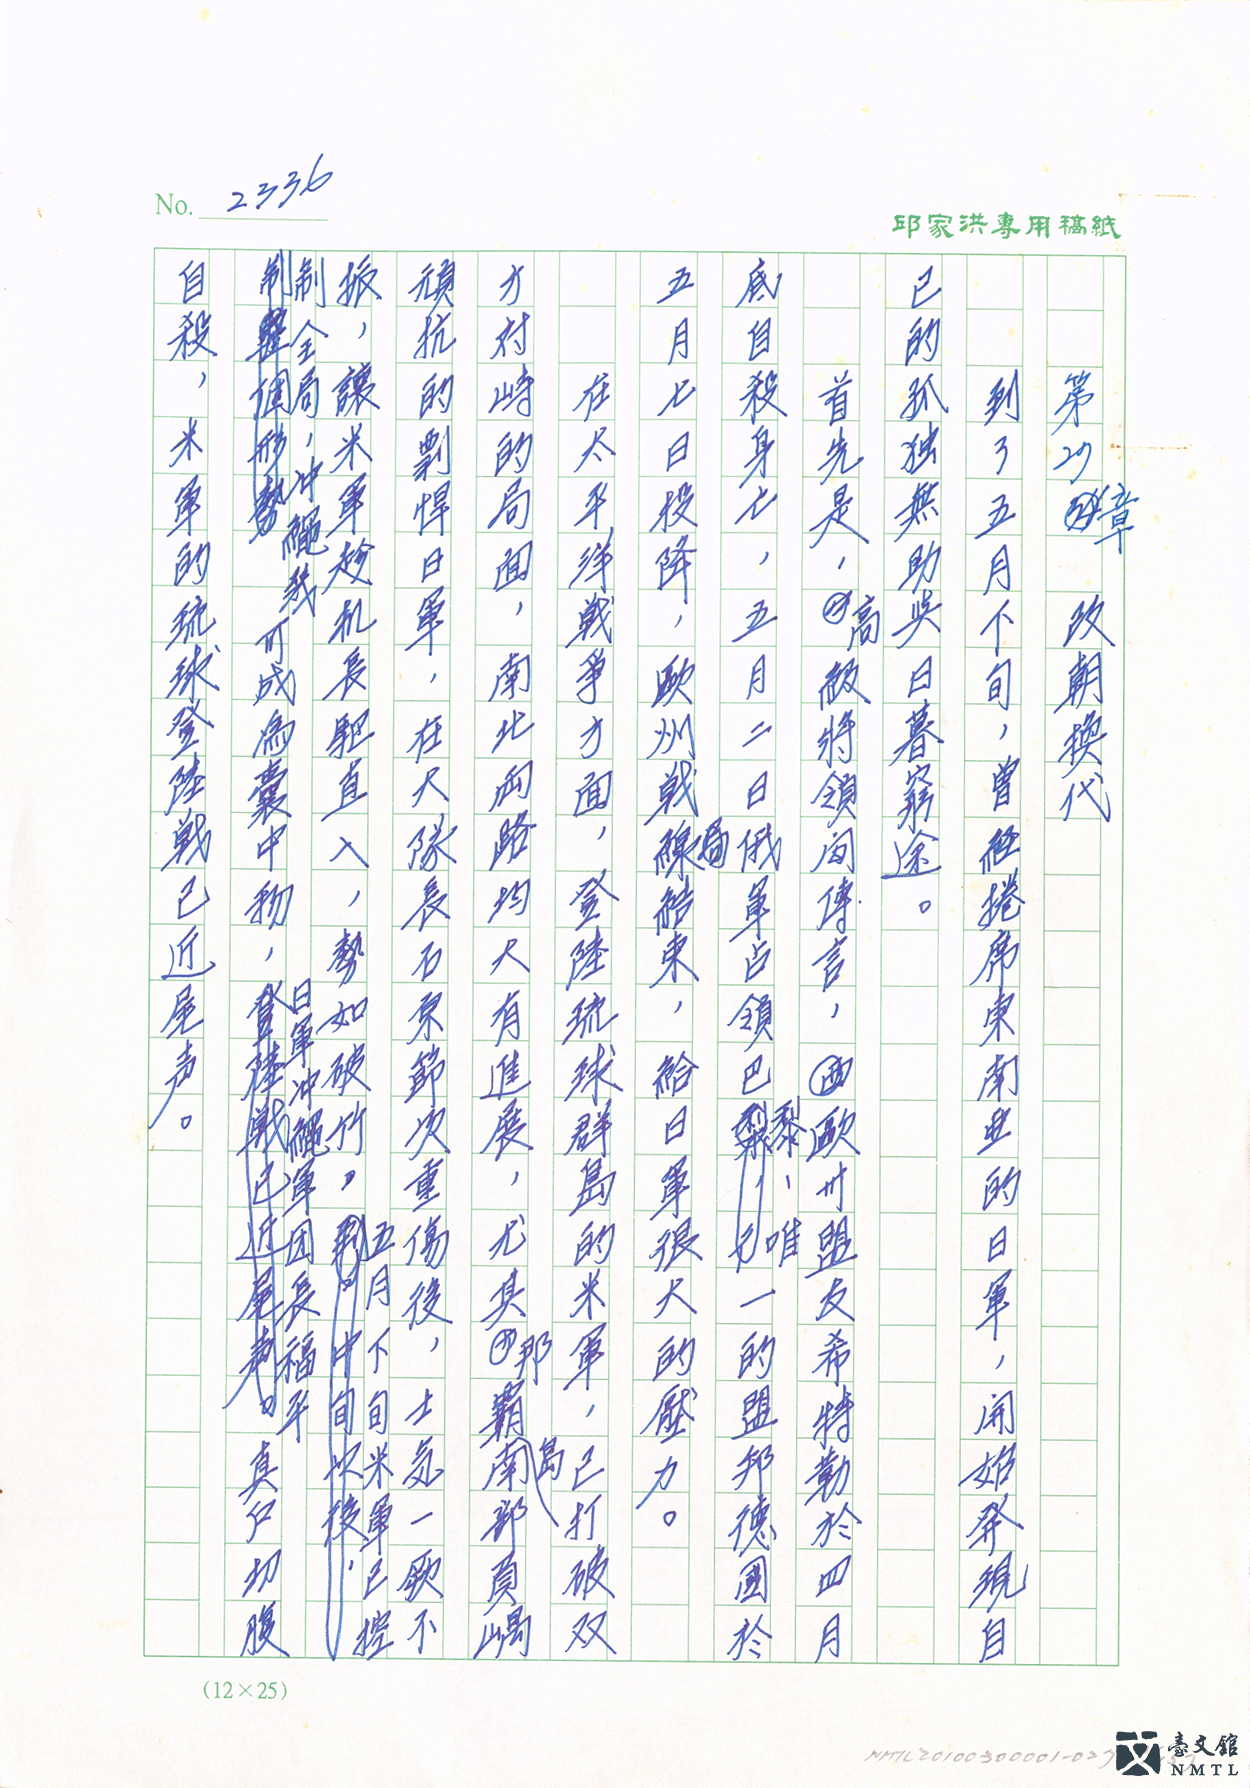 No. 2336
邱家洪專用稿紙
第27章　改朝換代
到了五月下旬，曾經捲席東南亜的日軍，開始発現自
己的孤独無助與日暮窮途。
首先是，高級將領间傳言，西歐卅盟友希特勒於四月
底自殺身亡，五月二日俄軍占領巴黎、唯一的盟邦德國於
五月七日投降，歐州戦局結束，給日軍很大的壓力。
在太平洋戦爭方面，登陸琉球群島的米軍，已打破双
方対峙的局面，南北両路均大有進展，尤其那覇島南部頁嵎
頑抗的剽悍日軍，在大隊長石原節次重傷後，士気一蹶不
振，讓米軍趁机長駆直入，勢如破竹。五月下旬米軍已控
制全局，冲繩幾可成為囊中物，日軍冲繩軍团長福平真仁切腹
自殺，米軍的琉球登陸戦已近尾声。
(12×25)
NMTL20100300001-027
臺文館
NMTL